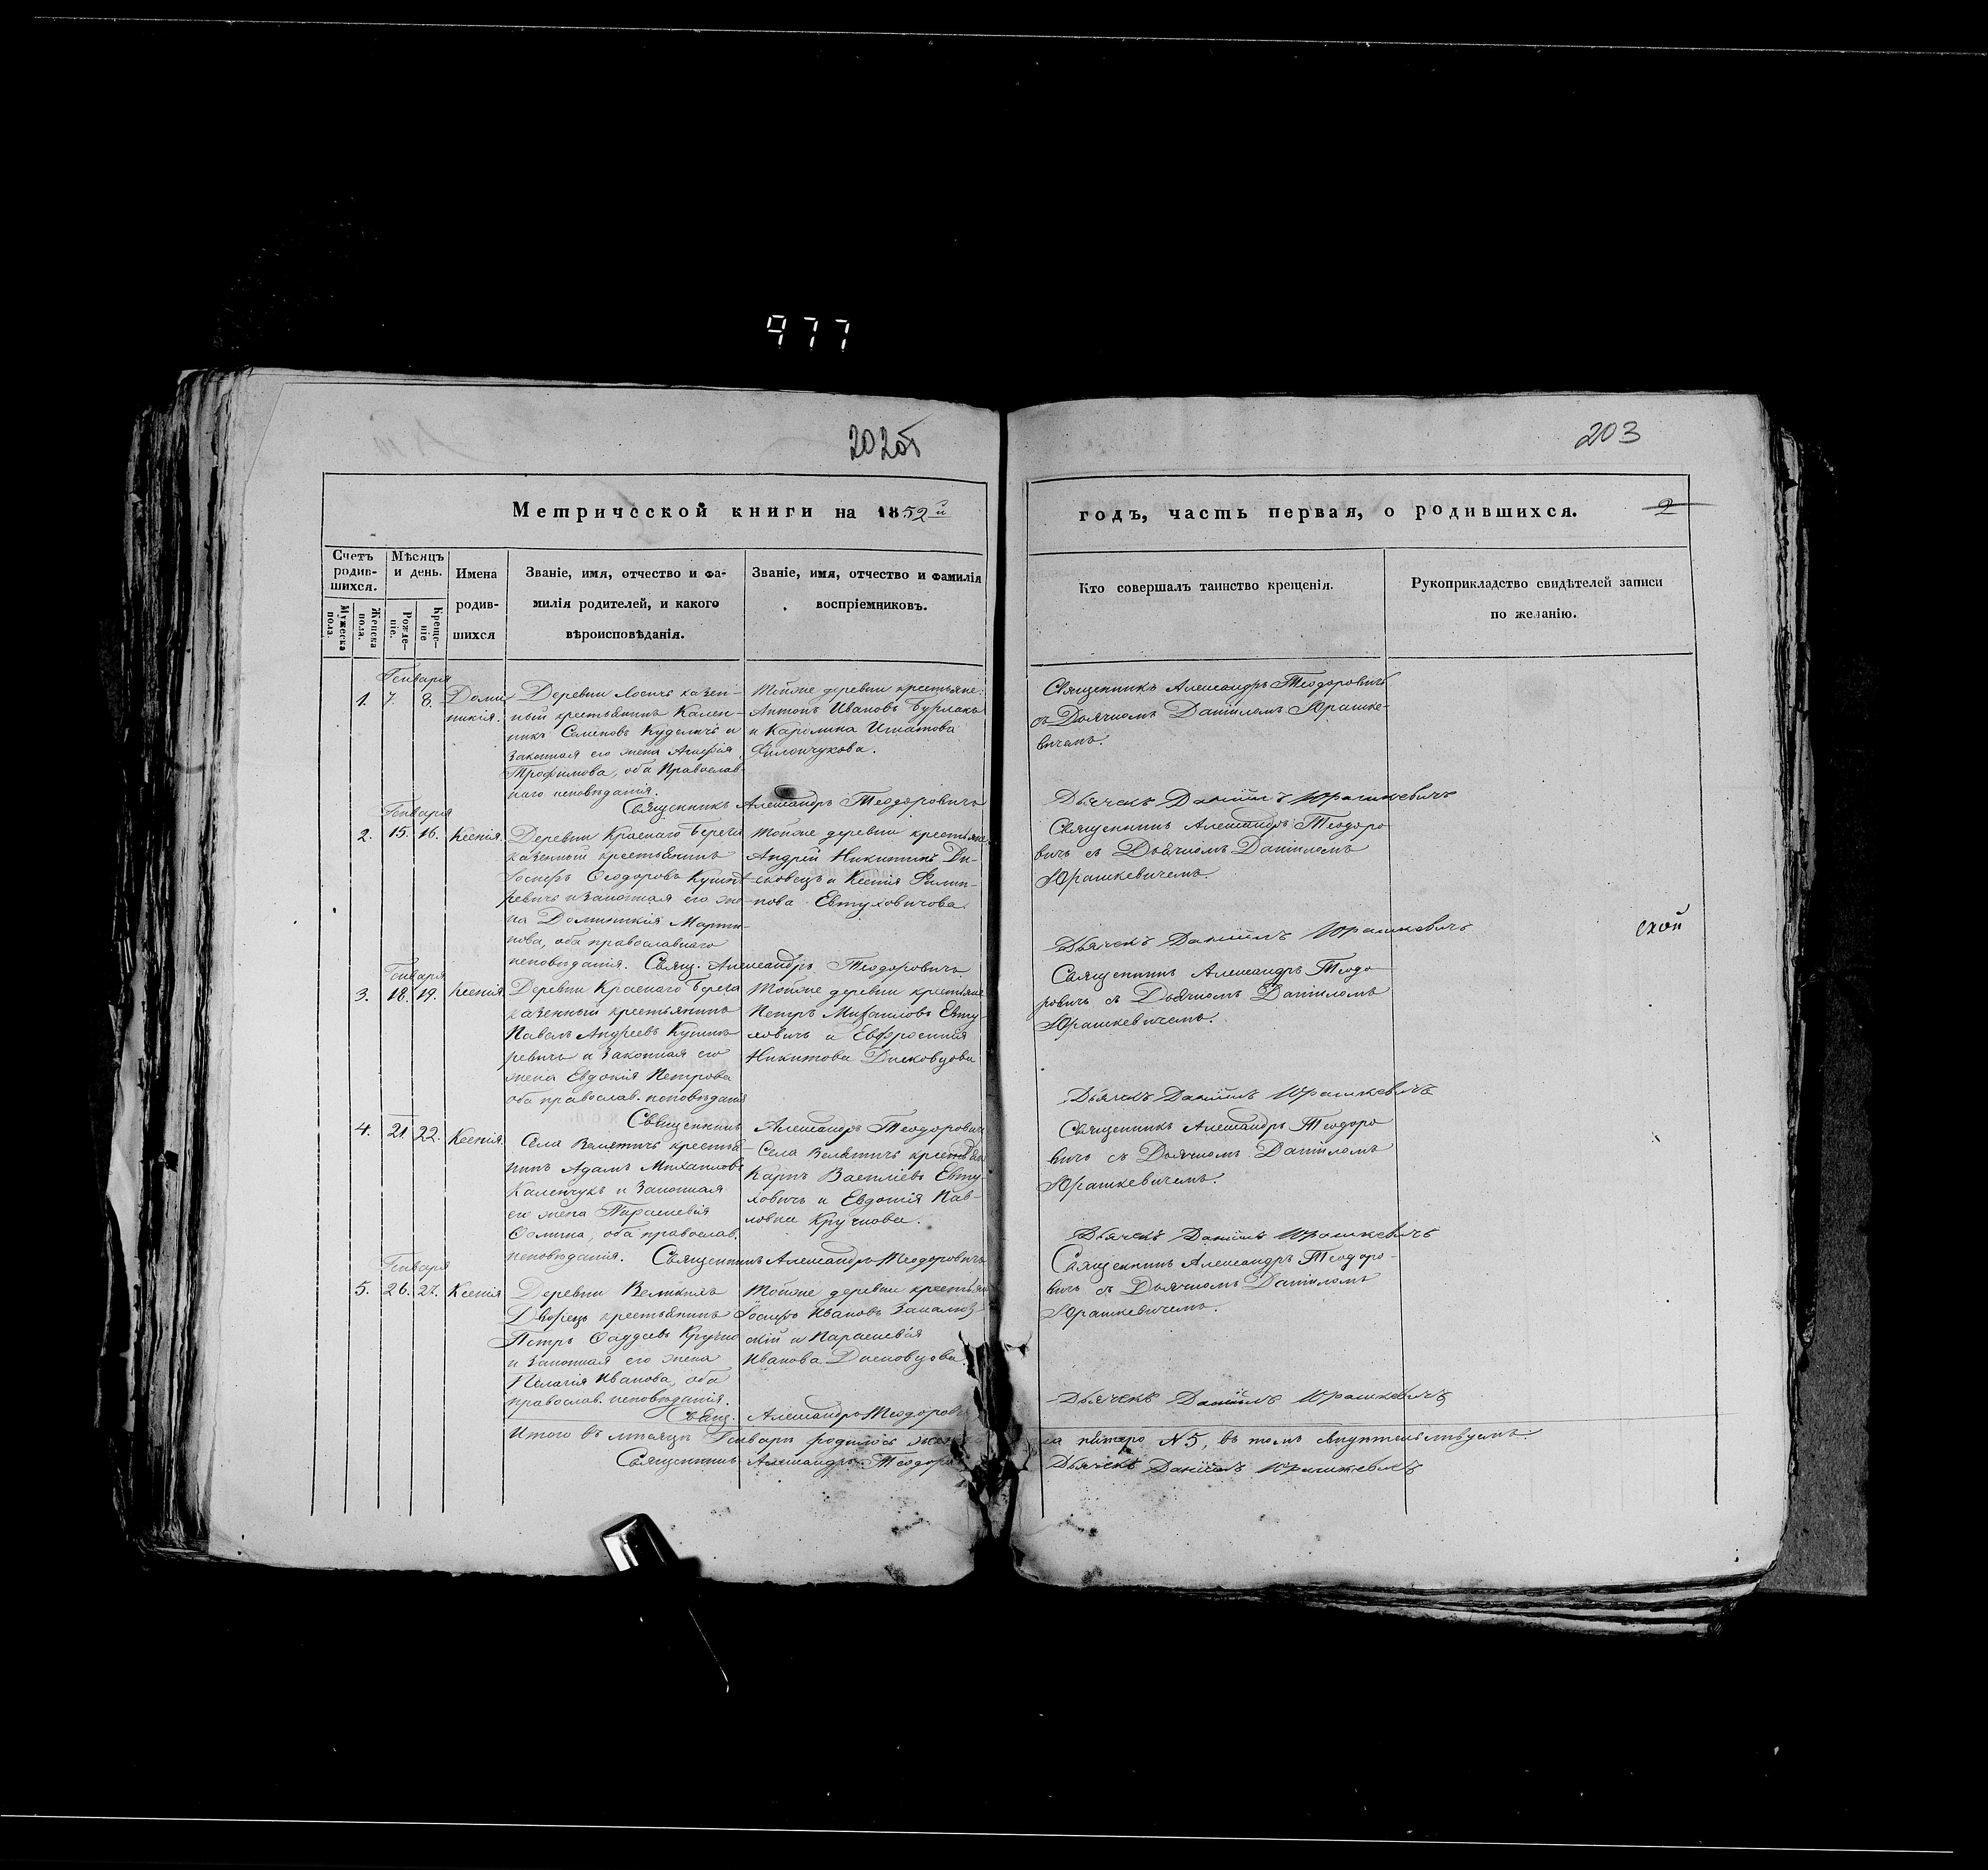 977
202об
203
Метрической книги на 1852й
годъ, часть первая, о родившихся.
2
Счетъ родив-шихся.
Мѣсяцъ и день.
Имена родив-шихся
Званіе, имя, отчество и фа-
милія родителей, и какого
вѣроисповѣданія.
Званіе, имя, отчество и фамилія
воспріемниковъ.
Кто совершалъ таинство крещенія.
Рукоприкладство свидѣтелей записи
по желанію.
Мужеска пола.
Женска пола.
Рожде-ніе.
Креще-ніе
Генваря
1. 7. 8. Доми-
никія.
Деревни Лосичъ казен-
ный крестьянинъ Кален-
никъ Семеновъ Куделичъ и
законная его жена
Трофимова, оба Православ-
наго исповѣданія.
Тойже деревни крестьяне:
Антонъ Ивановъ Бурлака
и Каролина Игнатова
Филончукова.
Священникъ Александръ Теодоровичъ
Священникъ Александръ Теодоровичъ
съ Дьячкомъ Даніиломъ Юрашке-
вичемъ.
Дьячекъ Даніилъ Юрашкевичъ
Генваря
2. 15. 16. Ксенія.
Деревни Краснаго Берега
казенный крестьянинъ
Іосифъ Ѳеодоровъ
ревичъ и законная его же-
на Доминикія Марти-
нова, оба православнаго
исповѣданія. Свящ. Александръ Теодоровичъ
Тойже деревни крестьяне
Андрей Никитинъ Ди-
сковецъ и Ксенія Филип-
пова Евтуховичова.
Священникъ Александръ Теодоро
вичъ съ Дьячкомъ Даніиломъ
Юрашкевичемъ.
Дьячекъ Даніилъ Юрашкевичъ
ской
Генваря
3. 18. 19. Ксенія
Деревни Краснаго Берега
казенный крестьянинъ
Павелъ Андреевъ
ревичъ и законная его
жена Евдокія Петрова
оба православ. исповѣданія
Тойже деревни крестьяне
Петръ Михаиловъ Евту-
ховичъ и Евфросинія
Никитова Дисковцова
Священникъ Александръ Теодоровичъ
Священникъ Александръ Теодо
ровичъ съ Дьячкомъ Даніиломъ
Юрашкевичемъ.
Дьячекъ Даніилъ Юрашкевичъ
4. 21. 22. Ксенія.
Села Велятичъ крестья-
нинъ Адамъ Михаиловъ
Каленчукъ и законная
его жена Параскевія
Ѳомина, оба православ.
исповѣданія. Священникъ Александръ Теодоровичъ
Села Велятичъ крестьяне
Карпъ Василіевъ Евту-
ховичъ и Евдокія Пав-
лова Кручкова.
Священникъ Александръ Теодоро
вичъ съ Дьячкомъ Даніиломъ
Юрашкевичемъ.
Дьячекъ Даніилъ Юрашкевичъ
Генваря
5. 26. 27. Ксенія
Деревни Великихъ
Дворецъ крестьянинъ
Петръ
и законная его жена
Пелагія Иванова, оба
православ. исповѣданія.
Тойже деревни крестьяне
Іосифъ Ивановъ
скій и Параскевія
Иванова Дисковцова.
Свящ. Александръ Теодоровичъ
Священникъ Александръ Теодоро-
вичъ съ Дьячкомъ Даніиломъ
Юрашкевичемъ.
Дьячекъ Даніилъ Юрашкевичъ
Итого въ мѣсяцѣ Генварѣ родилось женска пола пятеро N 5, въ томъ свидѣтельствуемъ.
Священникъ Александръ Теодоровичъ
Дьячекъ Даніилъ Юрашкевичъ